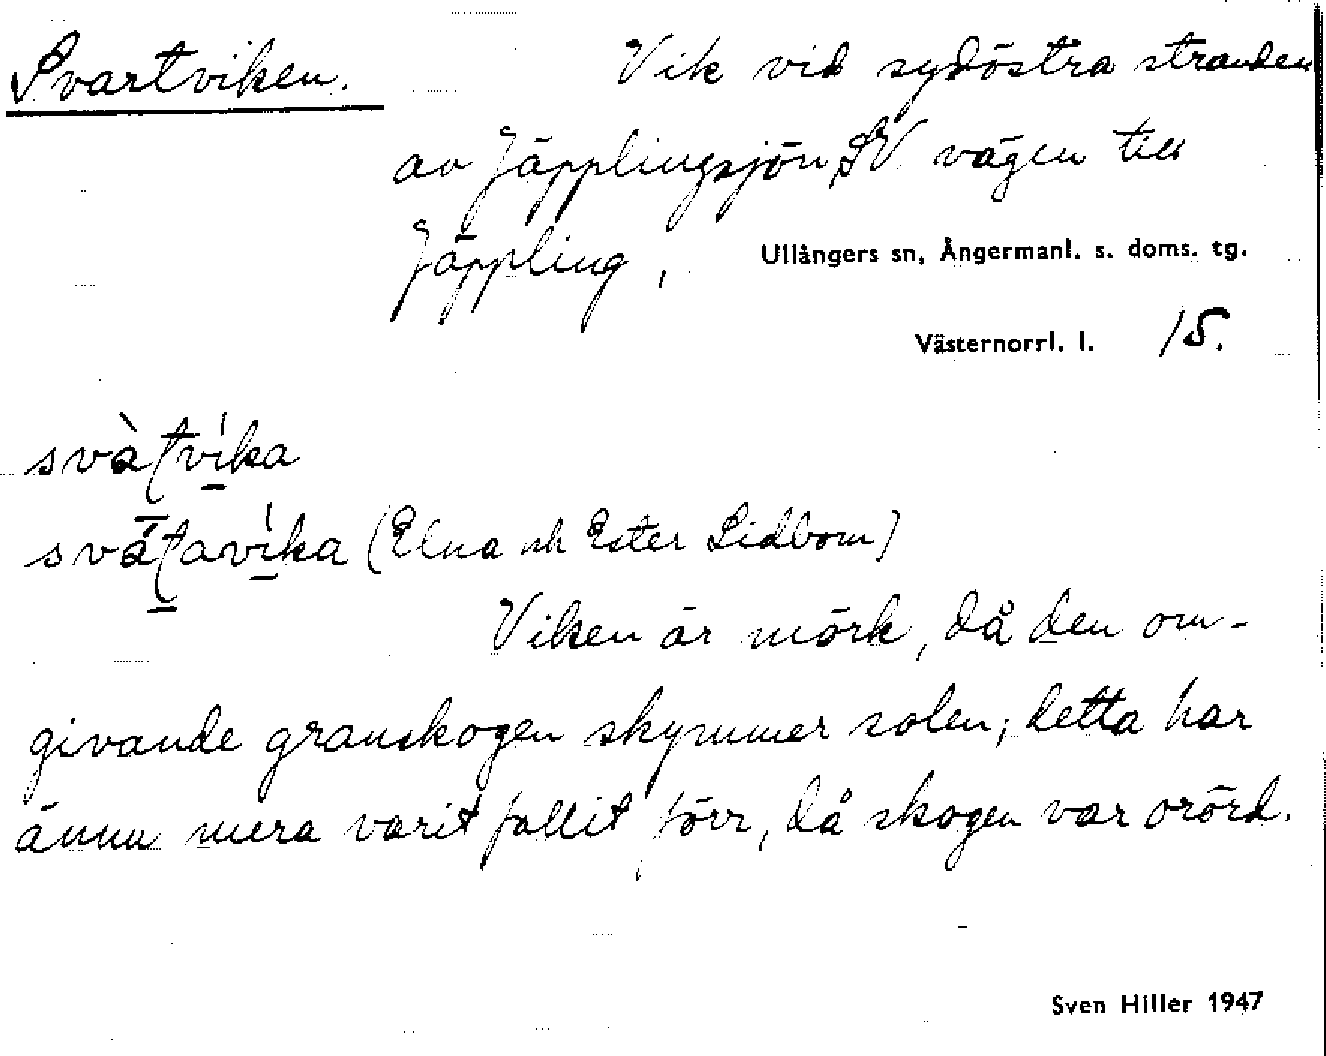 Svartviken. Vik vid sydöstra stranden
av Jäpplingsjön, SV vägen till
Jäppling, Ullångers sn, Ångermanl. s. doms. tg.
Västernorrl. l. 15.
svàt̠ví̠ka
svā́t̠aví̠ka (Elna och Ester Lidbom)
Viken är mörk, då den om-
givande granskogen skymmer solen; detta har
ännu mera varit fallit förr, då skogen var orörd.
Sven Hiller 1947